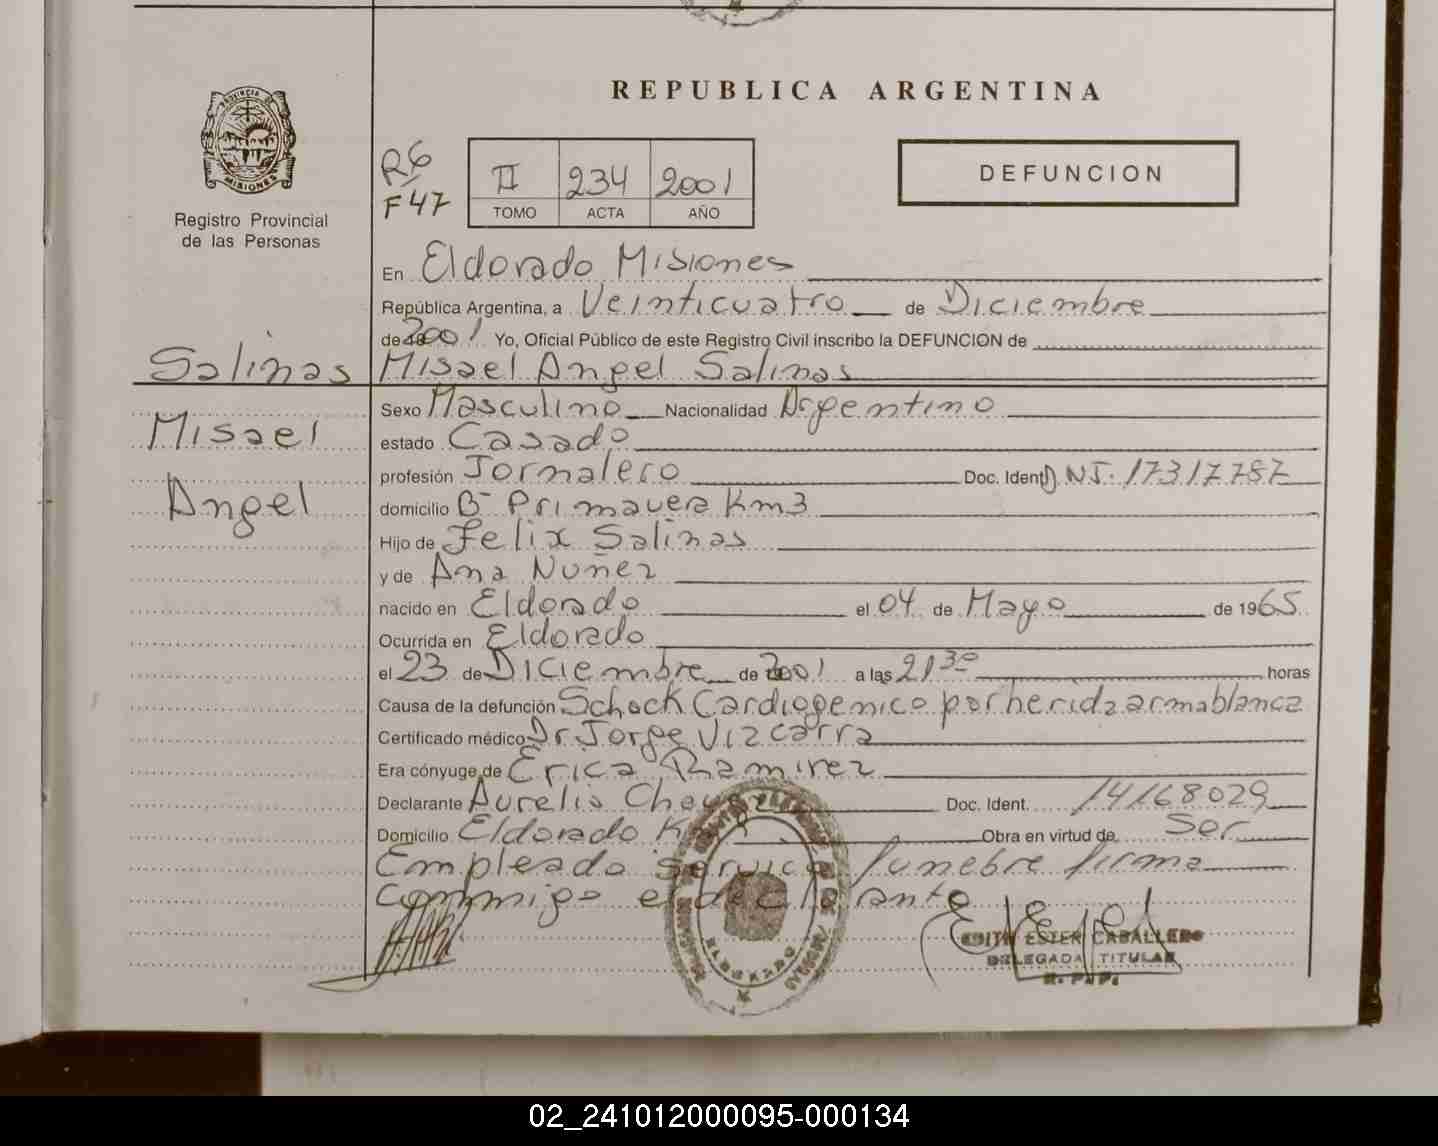 REPUBLICA ARGENTINA
PROVINCIA DE
MISIONES
Registro Provincial
de las Personas
R6
F47
II 234 2001
TOMO ACTA AÑO
DEFUNCION
En Eldorado Misiones
República Argentina, a Veinticuatro de Diciembre
de 2001 Yo, Oficial Público de este Registro Civil inscribo la DEFUNCION de
Salinas Misael Angel Salinas
Sexo Masculino Nacionalidad Argentino
Misael estado Casado
profesión Jornalero Doc. Ident D.N.I. 17317787
Angel domicilio Bº Primavera Km3
Hijo de Felix Salinas
y de Ana Nuñez
nacido en Eldorado el 04 de Mayo de 1965
Ocurrida en Eldorado
el 23 de Diciembre de 2001 a las 21 30 horas
Causa de la defunción Schock Cardiogenico por herida arma blanca
Certificado médico Dr Jorge Vizcarra
Era cónyuge de Erica Ramirez
Declarante Aurelio Doc. Ident. 14168029
Domicilio Eldorado K Obra en virtud de Ser
Empleado Servicio funebre firma
Commigo el declarante
EDITH ESTER CABALLERO
DELEGADA TITULAR
R. P. P.
ELDORADO
02_241012000095-000134